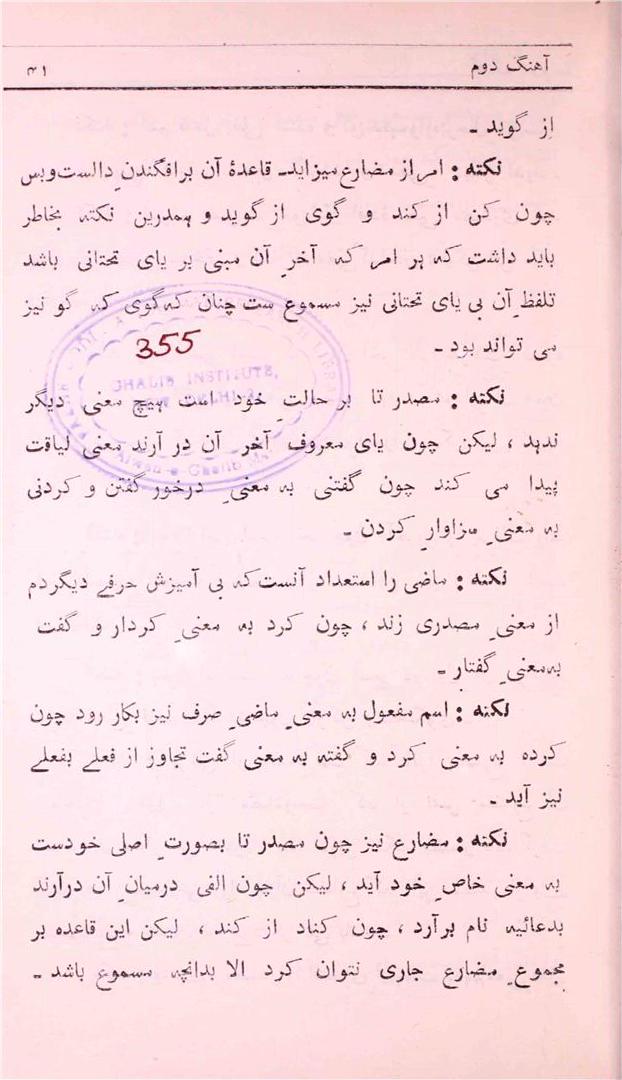 آهنگ دوم
۴۱
از گوید ـ
نکته : امر از مضارع میزاید۔ قاعدۀ آن برافگندنِ دالست و بس
چون کن از کند و گوی از گوید و ہمدرین نکته بخاطر
باید داشت که ہر امر که آخرِ آن مبنی بر یای تحتانی باشد
تلفظِ آن بی یای تحتانی نیز مسموع ست چنان که گوی که گو نیز
می تواند بود ـ
355
GHALIB INSTITUTE,
NEW DELHI
Aiwan-e-Ghalib
نکته : مصدر تا بر حالتِ خود است ہیچ معنی دیگر
ندہد ، لیکن چون یای معروف آخر آن در آرند معنی لیاقت
پیدا می کند چون گفتنی به معنیِ درخور گفتن و کردنی
به معنیِ سزاوارِ کردن ـ
نکته : ماضی را استعداد آنست که بی آمیزش حرفے دیگر دم
از معنیِ مصدری زند ، چون کرد به معنیِ کردار و گفت
به‌معنیِ گفتار ـ
نکته : اسم مفعول به معنیِ ماضیِ صرف نیز بکار رود چون
کرده به معنی کرد و گفته به معنی گفت تجاوز از فعلے بفعلے
نیز آید ـ
نکته : مضارع نیز چون مصدر تا بصورتِ اصلی خودست
به معنی خاصِ خود آید ، لیکن چون الفی درمیانِ آن درآرند
بدعائیه نام برآرد ، چون کناد از کند ، لیکن این قاعده بر
مجموعِ مضارع جاری نتوان کرد الا بدانچه مسموع باشد ـ